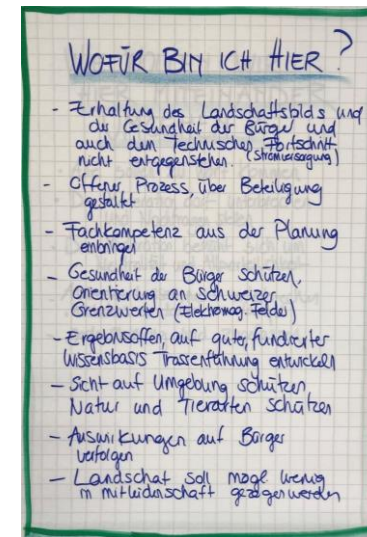 WOFÜR BIN ICH HIER?
- Erhaltung des Landschaftsbilds und
der Gesundheit der Bürger und
auch dem technischen Fortschritt
nicht entgegenstehen. (Stromversorgung)
- Offener Prozess, über Beteiligung
gestaltet
- Fachkompetenz aus der Planung
einbringen
- Gesundheit der Bürger schützen,
Orientierung an Schweizer
Grenzwerten (Elektromag. Felder)
- Ergebnisoffen, auf guter, fundierter
Wissensbasis Trassenführung entwickeln
- Sicht auf Umgebung schützen
Natur und Tierarten schützen
- Auswirkungen auf Bürger
verfolgen
- Landschaft soll mögl wenig
in mitleidenschaft gezogen werden